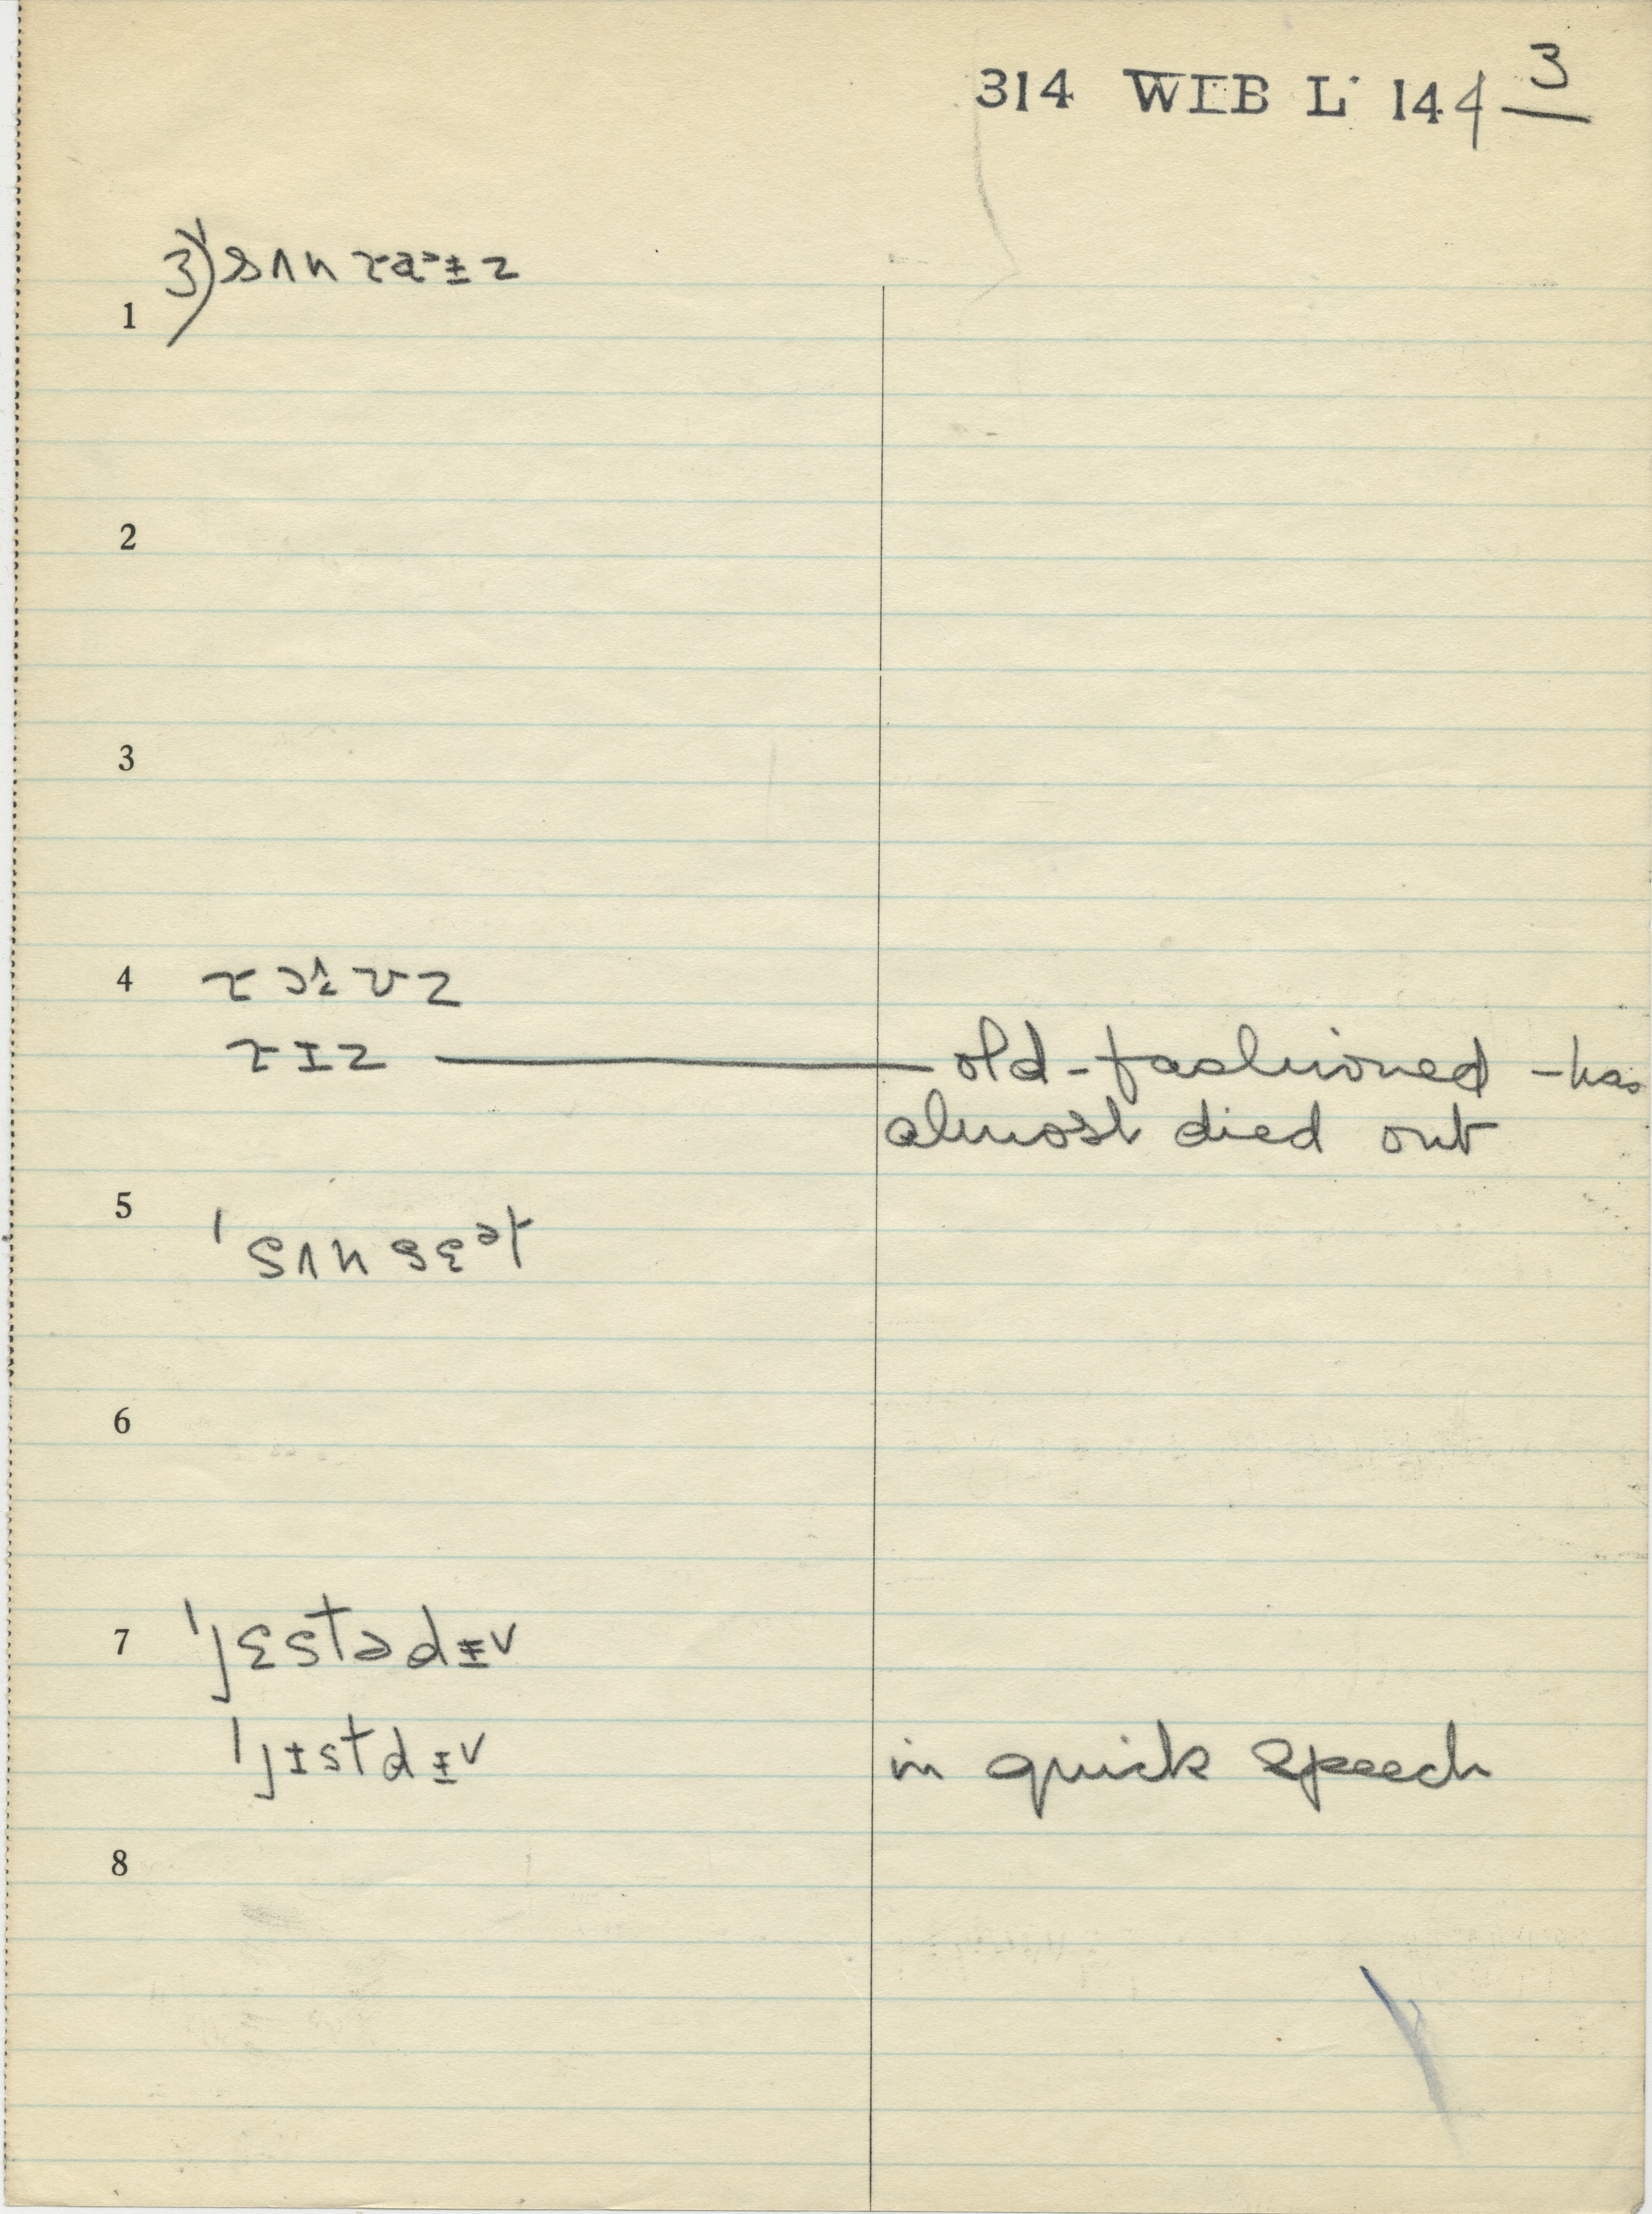 314 WIB L 144 3
3) sʌnraᵊɨz
1
2
3
4 roʌvz
rɪz — old-fashioned - has
almost died out
5 ˈsʌnsɛət
6
7 ˈjɛstədɨv
ˈjɪstdɨv in quick speech
8